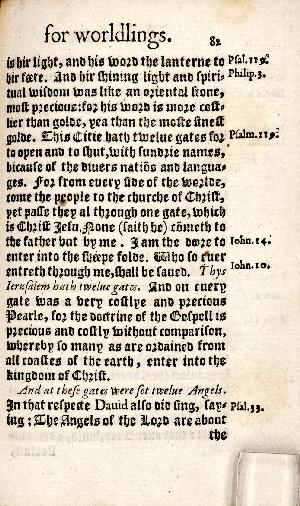 for worldlings. 82
is hir light, and his word the lanterne to Psal. 119.
hir feete. And hir shining light and spiri-
tual wisdom was like an oriental stone, Philip. 3.
most precious: for his word is more cost-
lier than golde, yea than the moste finest
golde. This Citie hath twelue gates for Psalm. 119.
to open and to shut, with sundrie names,
bicause of the diuers natiōs and langua-
ges. For from euery side of the worlde,
come the people to the churche of Christ,
yet passe they al through one gate, which
is Christ Jesu, None (saith he) cōmeth to
the father but by me. I am the dore to Iohn. 14.
enter into the shepe folde. Who so euer
entreth through me, shall be saued. Thys Iohn. 10.
Ierusalem hath twelue gates. And on euery
gate was a very costlye and precious
Pearle, for the doctrine of the Gospell is
precious and costly without comparison,
whereby so many as are ordained from
all coastes of the earth, enter into the
kingdom of Christ.
And at these gates were set twelue Angels.
In that respecte Dauid also did sing, say- Psal. 33.
ing: The Angels of the Lord are about
the